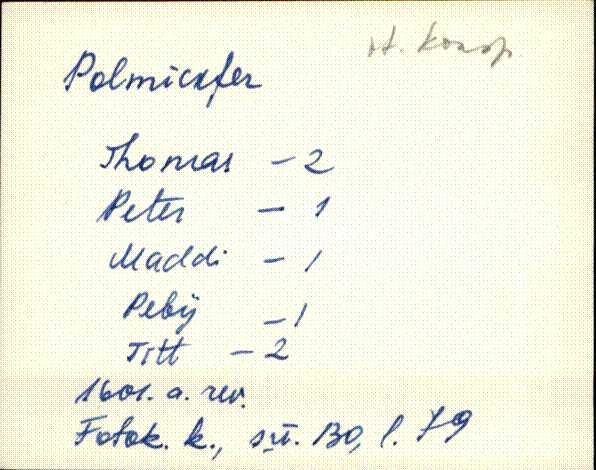 H. Konsp
Polmicxfer
Thomas – 2
Peter – 1
Maddi – 1
Peby – 1
Titt – 2
1601. a. rev.
Fotok. k., sü. BO, l. 79